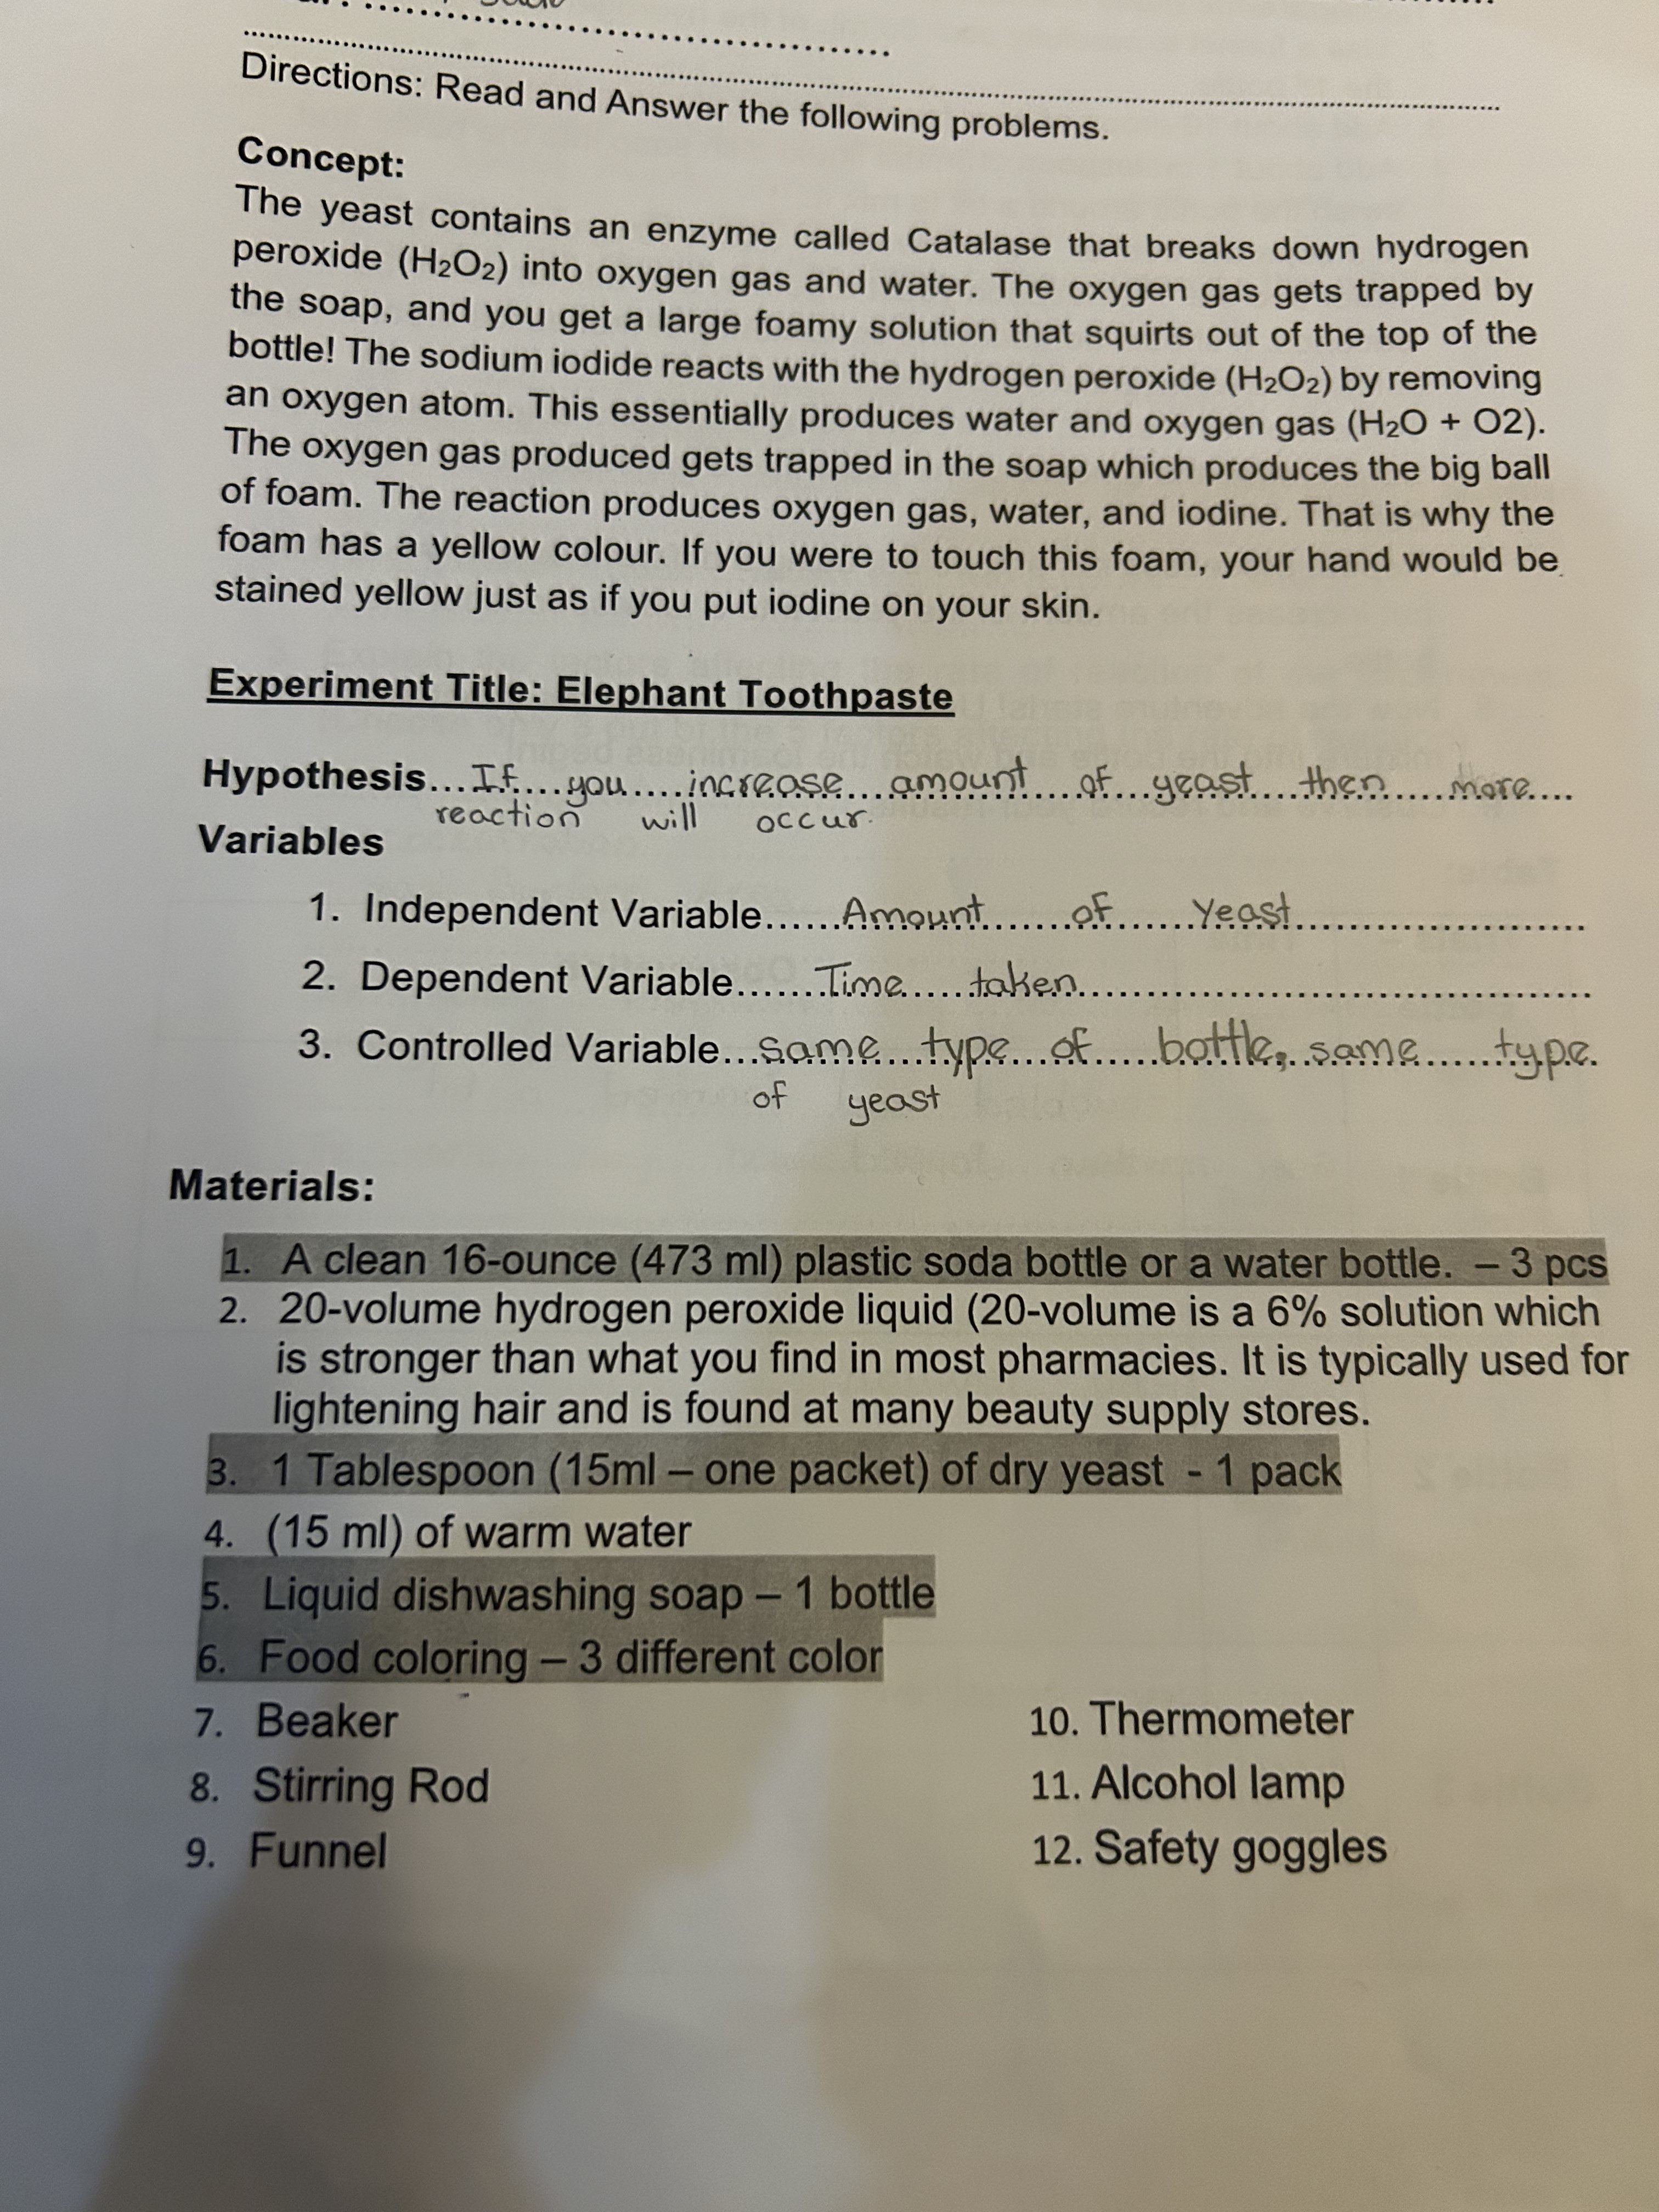 Directions: Read and Answer the following problems.
Concept:
The yeast contains an enzyme called Catalase that breaks down hydrogen
peroxide (H₂O₂) into oxygen gas and water. The oxygen gas gets trapped by
the soap, and you get a large foamy solution that squirts out of the top of the
bottle! The sodium iodide reacts with the hydrogen peroxide (H₂O₂) by removing
an oxygen atom. This essentially produces water and oxygen gas (H₂O + O2).
The oxygen gas produced gets trapped in the soap which produces the big ball
of foam. The reaction produces oxygen gas, water, and iodine. That is why the
foam has a yellow colour. If you were to touch this foam, your hand would be
stained yellow just as if you put iodine on your skin.
Experiment Title: Elephant Toothpaste
Hypothesis....If....you....increase...amount....of...yeast....then....more....
reaction will occur.
Variables
1. Independent Variable......Amount......of......Yeast......
2. Dependent Variable.......Time.....taken......
3. Controlled Variable...same...type...of....bottle,..same.....type.
of yeast
Materials:
1. A clean 16-ounce (473 ml) plastic soda bottle or a water bottle. – 3 pcs
2. 20-volume hydrogen peroxide liquid (20-volume is a 6% solution which
is stronger than what you find in most pharmacies. It is typically used for
lightening hair and is found at many beauty supply stores.
3. 1 Tablespoon (15ml – one packet) of dry yeast - 1 pack
4. (15 ml) of warm water
5. Liquid dishwashing soap – 1 bottle
6. Food coloring – 3 different color
7. Beaker
8. Stirring Rod
9. Funnel
10. Thermometer
11. Alcohol lamp
12. Safety goggles